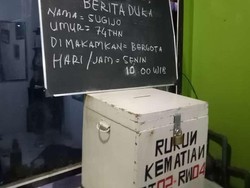 BERITA DUKA
NAMA = SUGIJO
UMUR = 74 THN
DIMAKAMKAN = BERGOTA
HARI/JAM = SENIN
10 00 WIB
RUKUN
KEMATIAN
RT02-RW04